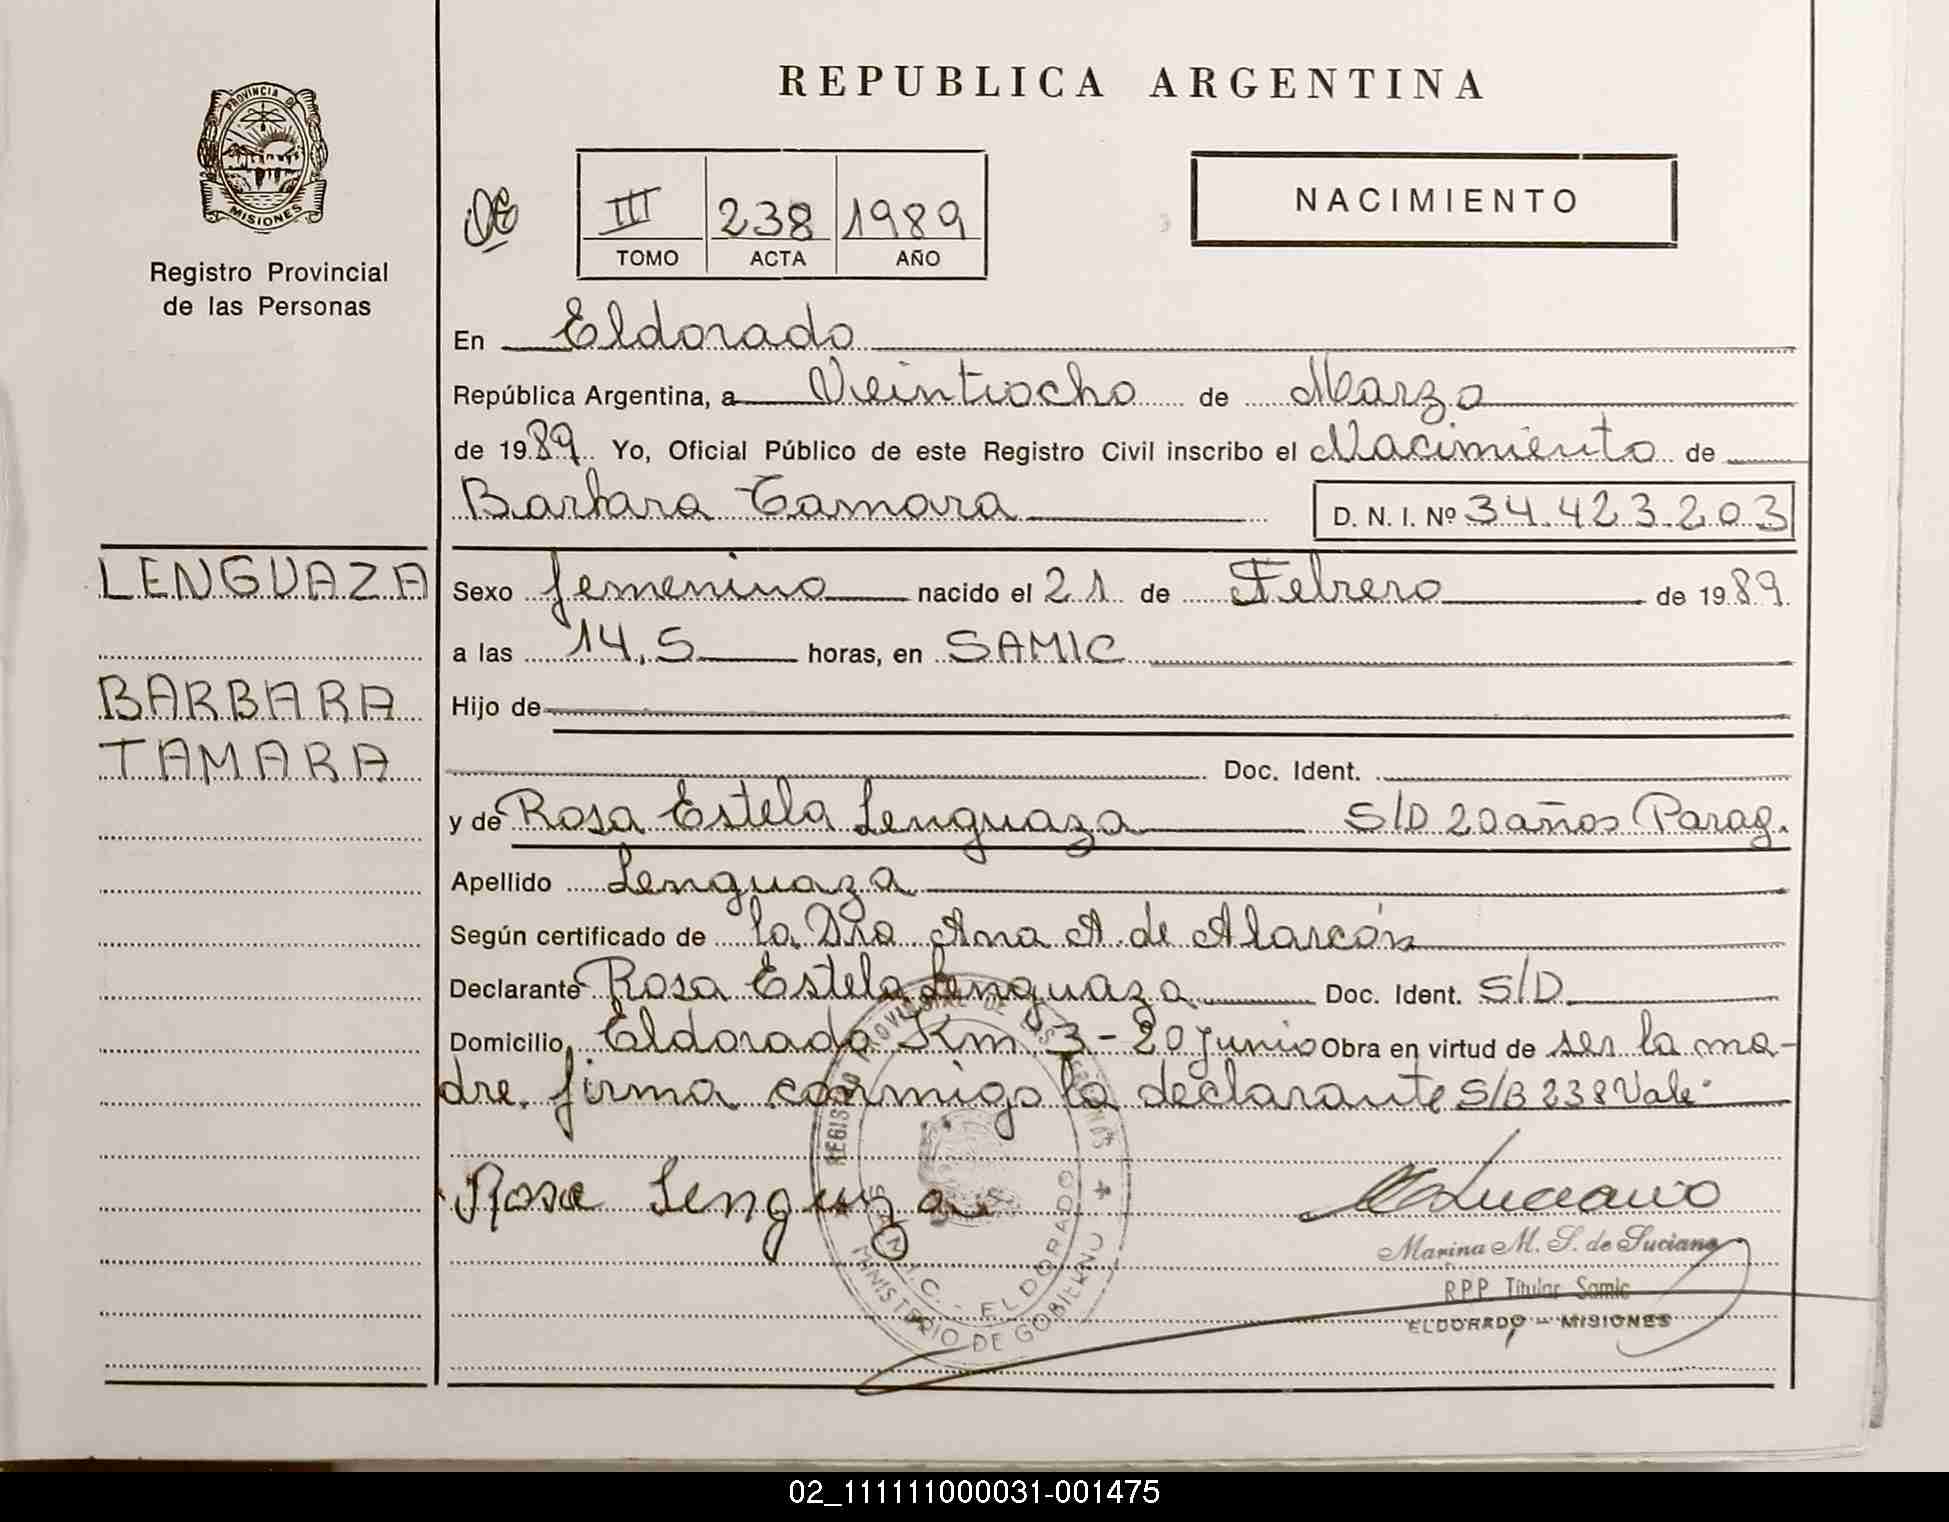 REPUBLICA ARGENTINA
PROVINCIA DE
MISIONES
Registro Provincial
de las Personas
III 238 1989
TOMO ACTA AÑO
NACIMIENTO
En Eldorado
República Argentina, a Veintiocho de Marzo
de 1989 Yo, Oficial Público de este Registro Civil inscribo el Nacimiento de
Barbara Tamara D. N. I. Nº 34.423.203
LENGUAZA
BARBARA
TAMARA
Sexo femenino nacido el 21 de Febrero de 1989.
a las 14,5 horas, en SAMIC
Hijo de
Doc. Ident.
y de Rosa Estela Lenguaza S/D 20 años Parag.
Apellido Lenguaza
Según certificado de la Dra Ana A. de Alarcón
Declarante Rosa Estela Lenguaza Doc. Ident. S/D
Domicilio Eldorado Km 3 - 20 Junio Obra en virtud de ser la ma-
dre. firma conmigo la declarante S/B 238 Vale.
Rosa Lenguaza
Luciano
Marina M. S. de Luciano
R.P.P. Titular Samic
ELDORADO - MISIONES
REGISTRO PROVINCIAL DE LAS PERSONAS
MINISTERIO DE GOBIERNO
ELDORADO
02_111111000031-001475